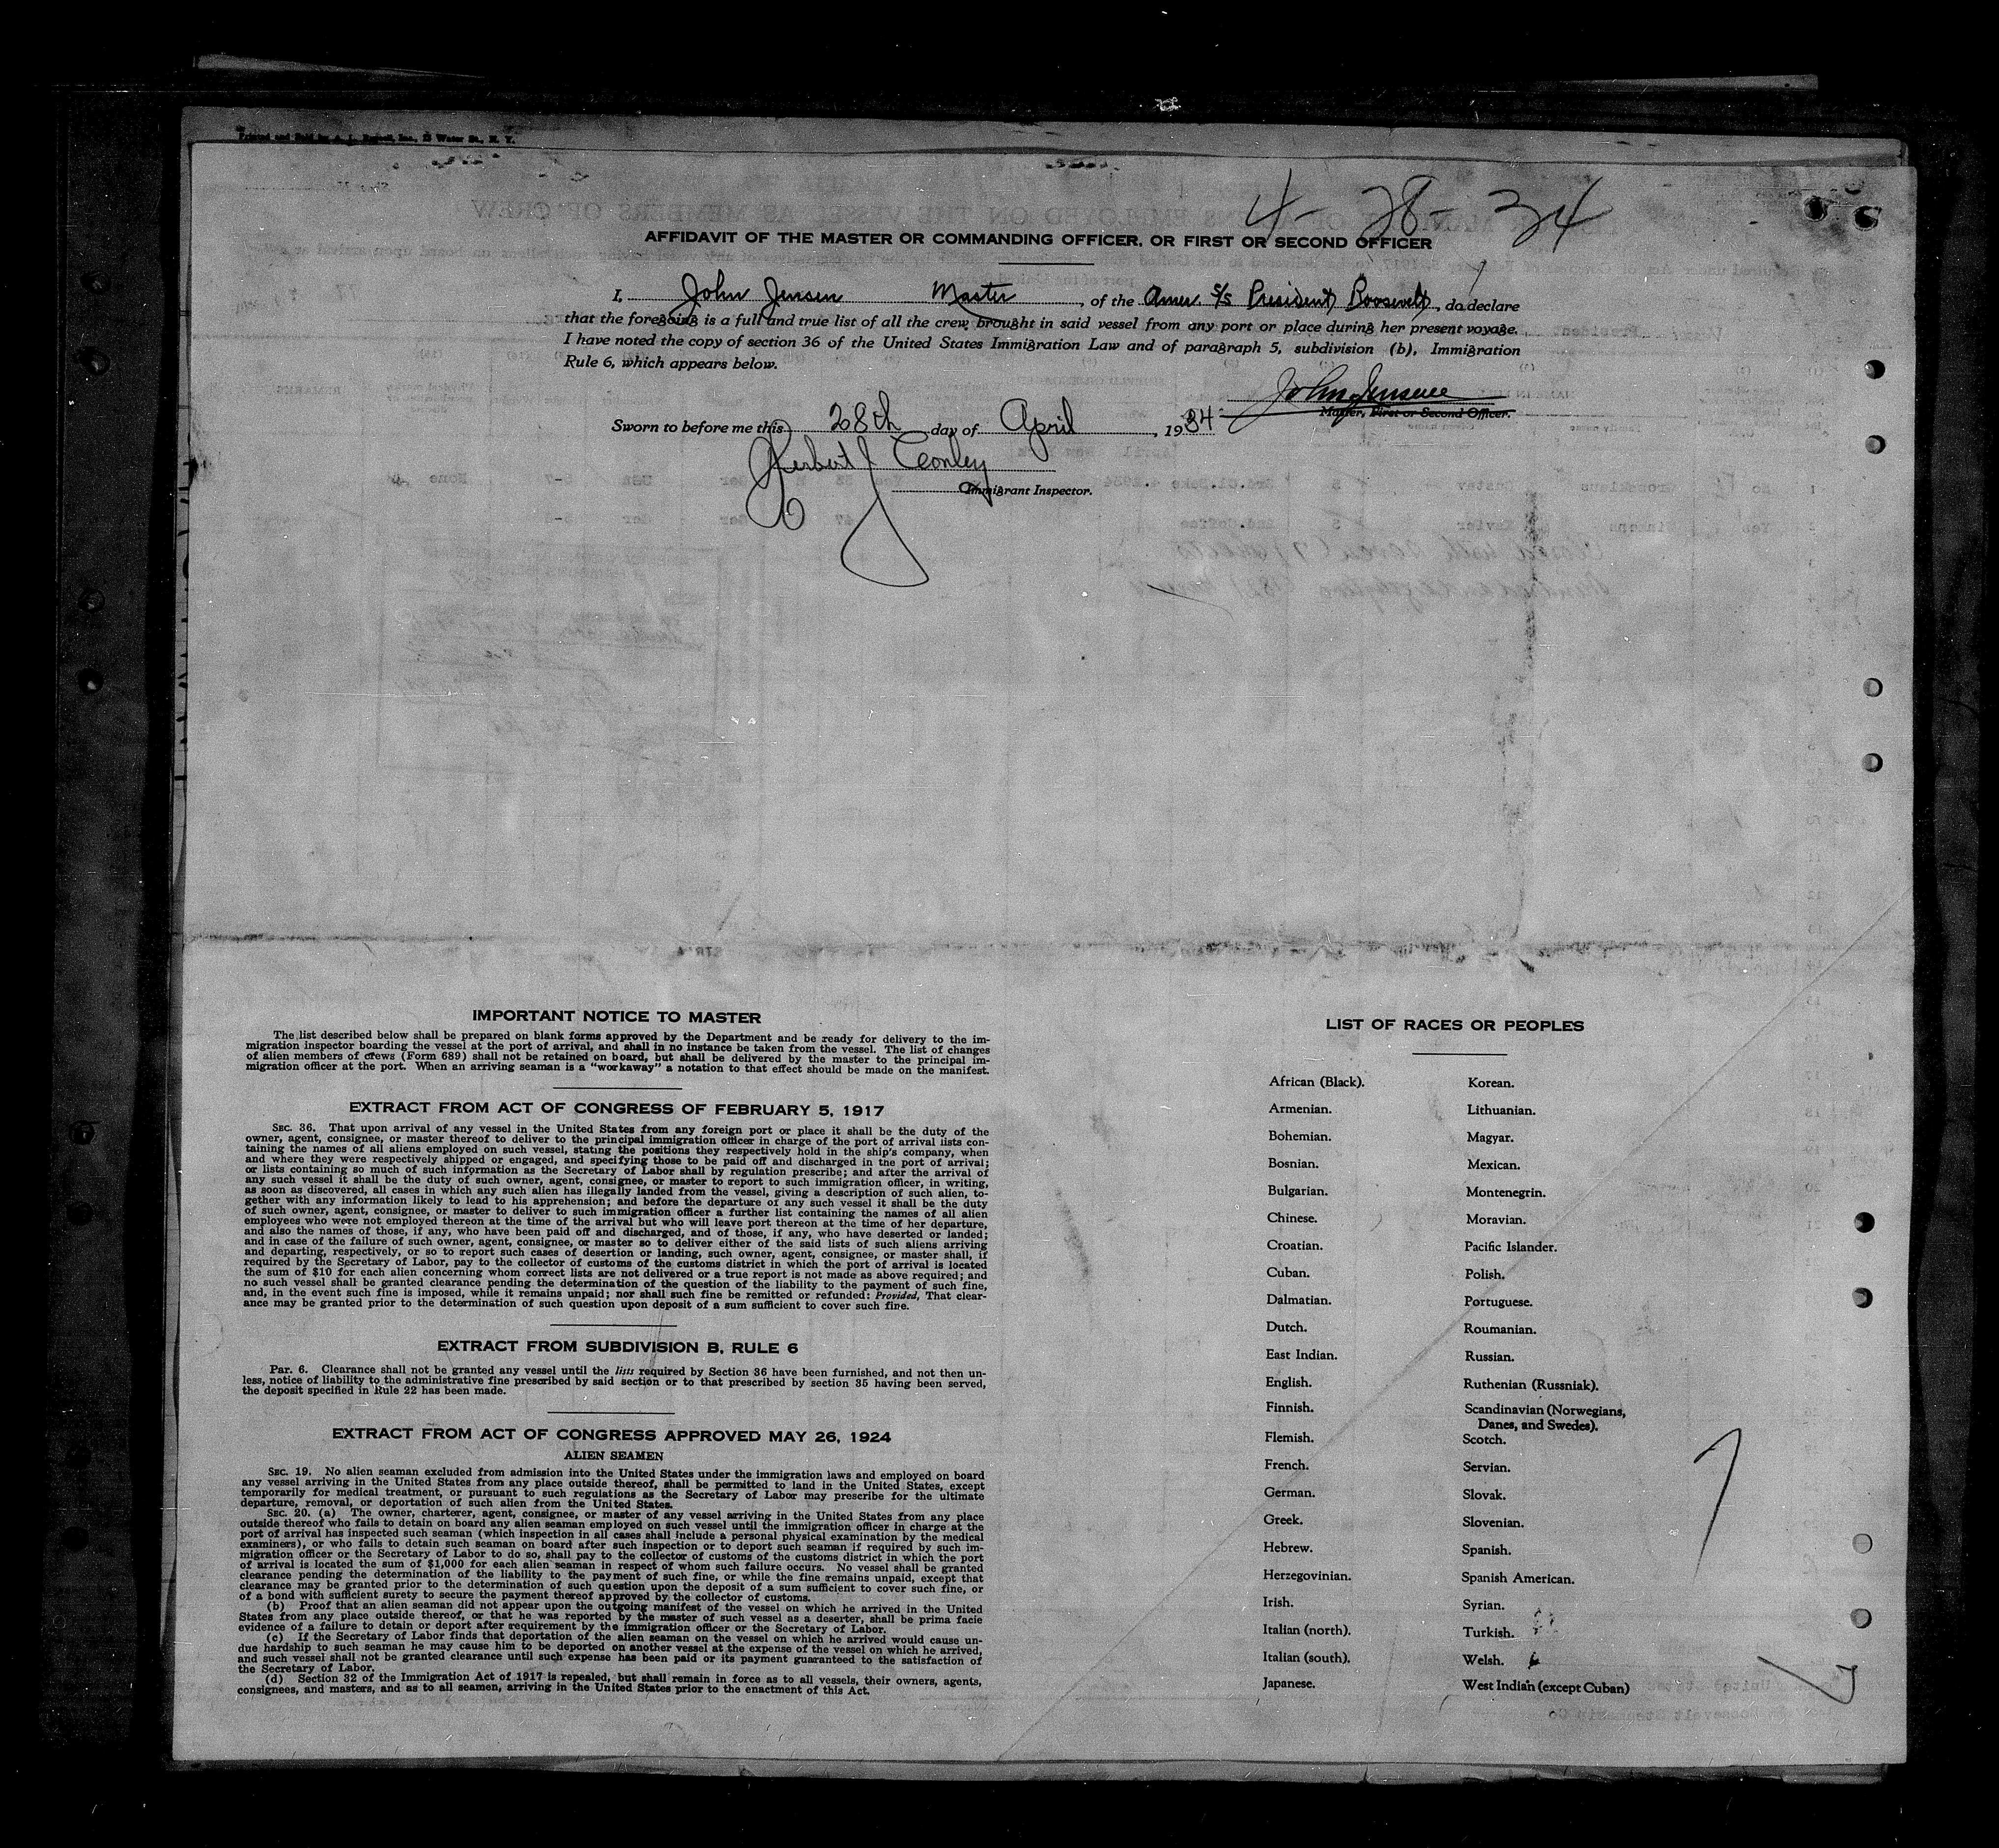 Printed and Sold by A. L. Russell, Inc., 13 Water St., N. Y.
4-28-34
AFFIDAVIT OF THE MASTER OR COMMANDING OFFICER, OR FIRST OR SECOND OFFICER
I, John Jensen Master, of the Amer. S/S President Roosevelt, do declare
that the foregoing is a full and true list of all the crew brought in said vessel from any port or place during her present voyage.
I have noted the copy of section 36 of the United States Immigration Law and of paragraph 5, subdivision (b), Immigration
Rule 6, which appears below.
John Jensen
Master, First or Second Officer.
Sworn to before me this 28th day of April, 1934
Herbert J Conley
Immigrant Inspector.
IMPORTANT NOTICE TO MASTER
The list described below shall be prepared on blank forms approved by the Department and be ready for delivery to the im-
migration inspector boarding the vessel at the port of arrival, and shall in no instance be taken from the vessel. The list of changes
of alien members of crews (Form 689) shall not be retained on board, but shall be delivered by the master to the principal im-
migration officer at the port. When an arriving seaman is a "workaway" a notation to that effect should be made on the manifest.
EXTRACT FROM ACT OF CONGRESS OF FEBRUARY 5, 1917
SEC. 36. That upon arrival of any vessel in the United States from any foreign port or place it shall be the duty of the
owner, agent, consignee, or master thereof to deliver to the principal immigration officer in charge of the port of arrival lists con-
taining the names of all aliens employed on such vessel, stating the positions they respectively hold in the ship's company, when
and where they were respectively shipped or engaged, and specifying those to be paid off and discharged in the port of arrival;
or lists containing so much of such information as the Secretary of Labor shall by regulation prescribe; and after the arrival of
any such vessel it shall be the duty of such owner, agent, consignee, or master to report to such immigration officer, in writing,
as soon as discovered, all cases in which any such alien has illegally landed from the vessel, giving a description of such alien, to-
gether with any information likely to lead to his apprehension; and before the departure of any such vessel it shall be the duty
of such owner, agent, consignee, or master to deliver to such immigration officer a further list containing the names of all alien
employees who were not employed thereon at the time of the arrival but who will leave port thereon at the time of her departure,
and also the names of those, if any, who have been paid off and discharged, and of those, if any, who have deserted or landed;
and in case of the failure of such owner, agent, consignee, or master so to deliver either of the said lists of such aliens arriving
and departing, respectively, or so to report such cases of desertion or landing, such owner, agent, consignee, or master shall, if
required by the Secretary of Labor, pay to the collector of customs of the customs district in which the port of arrival is located
the sum of $10 for each alien concerning whom correct lists are not delivered or a true report is not made as above required; and
no such vessel shall be granted clearance pending the determination of the question of the liability to the payment of such fine,
and, in the event such fine is imposed, while it remains unpaid; nor shall such fine be remitted or refunded: Provided, That clear-
ance may be granted prior to the determination of such question upon deposit of a sum sufficient to cover such fine.
EXTRACT FROM SUBDIVISION B, RULE 6
Par. 6. Clearance shall not be granted any vessel until the lists required by Section 36 have been furnished, and not then un-
less, notice of liability to the administrative fine prescribed by said section or to that prescribed by section 35 having been served,
the deposit specified in Rule 22 has been made.
EXTRACT FROM ACT OF CONGRESS APPROVED MAY 26, 1924
ALIEN SEAMEN
SEC. 19. No alien seaman excluded from admission into the United States under the immigration laws and employed on board
any vessel arriving in the United States from any place outside thereof, shall be permitted to land in the United States, except
temporarily for medical treatment, or pursuant to such regulations as the Secretary of Labor may prescribe for the ultimate
departure, removal, or deportation of such alien from the United States.
SEC. 20. (a) The owner, charterer, agent, consignee, or master of any vessel arriving in the United States from any place
outside thereof who fails to detain on board any alien seaman employed on such vessel until the immigration officer in charge at the
port of arrival has inspected such seaman (which inspection in all cases shall include a personal physical examination by the medical
examiners), or who fails to detain such seaman on board after such inspection or to deport such seaman if required by such im-
migration officer or the Secretary of Labor to do so, shall pay to the collector of customs of the customs district in which the port
of arrival is located the sum of $1,000 for each alien seaman in respect of whom such failure occurs. No vessel shall be granted
clearance pending the determination of the liability to the payment of such fine, or while the fine remains unpaid, except that
clearance may be granted prior to the determination of such question upon the deposit of a sum sufficient to cover such fine, or
of a bond with sufficient surety to secure the payment thereof approved by the collector of customs.
(b) Proof that an alien seaman did not appear upon the outgoing manifest of the vessel on which he arrived in the United
States from any place outside thereof, or that he was reported by the master of such vessel as a deserter, shall be prima facie
evidence of a failure to detain or deport after requirement by the immigration officer or the Secretary of Labor.
(c) If the Secretary of Labor finds that deportation of the alien seaman on the vessel on which he arrived would cause un-
due hardship to such seaman he may cause him to be deported on another vessel at the expense of the vessel on which he arrived,
and such vessel shall not be granted clearance until such expense has been paid or its payment guaranteed to the satisfaction of
the Secretary of Labor.
(d) Section 32 of the Immigration Act of 1917 is repealed, but shall remain in force as to all vessels, their owners, agents,
consignees, and masters, and as to all seamen, arriving in the United States prior to the enactment of this Act.
LIST OF RACES OR PEOPLES
African (Black).
Armenian.
Bohemian.
Bosnian.
Bulgarian.
Chinese.
Croatian.
Cuban.
Dalmatian.
Dutch.
East Indian.
English.
Finnish.
Flemish.
French.
German.
Greek.
Hebrew.
Herzegovinian.
Irish.
Italian (north).
Italian (south).
Japanese.
Korean.
Lithuanian.
Magyar.
Mexican.
Montenegrin.
Moravian.
Pacific Islander.
Polish.
Portuguese.
Roumanian.
Russian.
Ruthenian (Russniak).
Scandinavian (Norwegians,
Danes, and Swedes).
Scotch.
Servian.
Slovak.
Slovenian.
Spanish.
Spanish American.
Syrian.
Turkish.
Welsh.
West Indian (except Cuban)